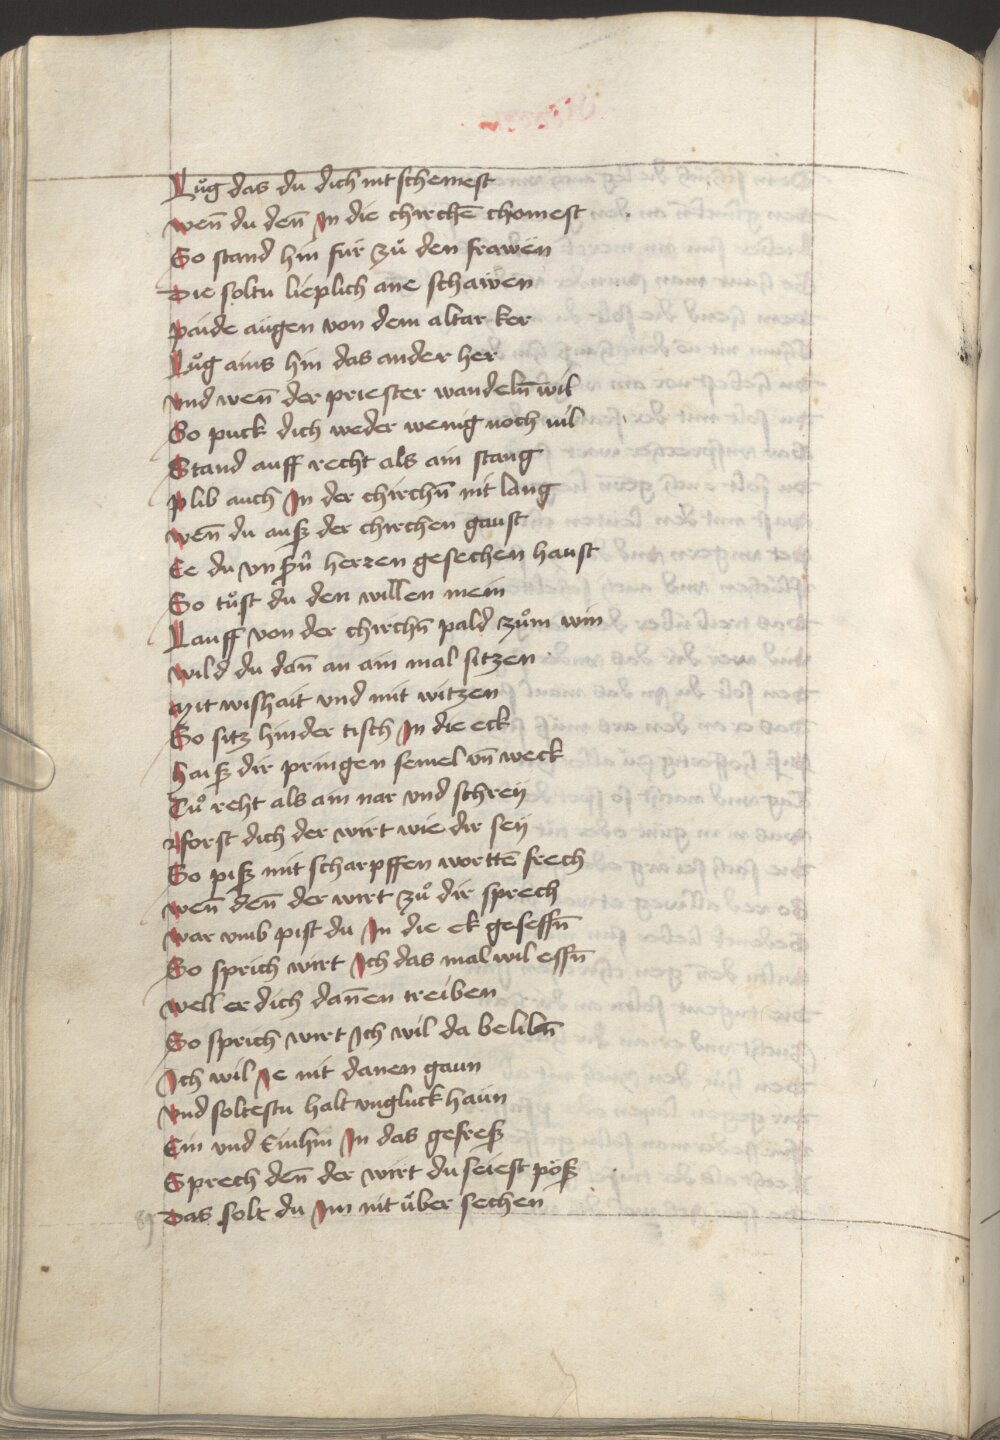 Lůg das du dich nit schemest
wen̄ du den̄ In die chirchē chomest
So stand hin für zů den frawen
Die soltu lieplich ane schawen
paide augen von dem altar ker
Lůg ains hin das ander her
vnd wen̄ der priester wandeln̄ wil
So puck dich weder wenig noch uil
Stand auff recht als ain stang
plib auch In der chirchn̄ nit lang
wen̄ du auß der chirchen gaust
Ee du vnßn̄ herren gesechen haust
So tůst du den willen mein
Lauff von der chirchn̄ pald zům win
wild du dan̄ an ain mal sitzen
Mit wishait vnd mit witzen
So sitz hinder tisch In die eck
haiß dir pringen semel vn̄ weck
Tů reht als ain nar vnd schreij
forst dich der wirt wie dir seij
So piß mit scharpffen worttē frech
wen̄ den̄ der wirt zů dir sprech
war vmb pist du In die ek gesessn̄
So sprich wirt Ich das mal wil essn̄
well er dich dan̄en treiben
So sprich wirt Ich wil da belibn̄
Ich wil Ie nit danen gaun
vnd soltestu halt vngluck haün
Ein vnd Einhin In das gefreß
Sprech den̄ der wirt du seiest pöß
Das solt du Im nit über sechen